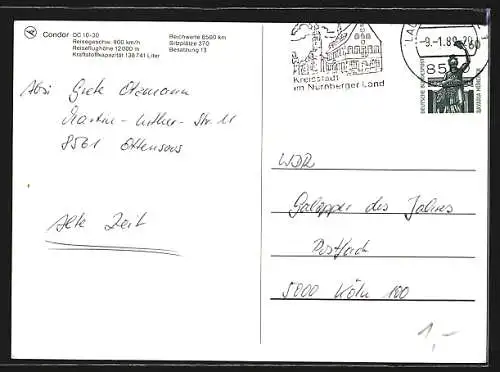 Condor DC 10-30
Reisegeschw. 900 km/h
Reiseflughöhe 12000 m
Kraftstoffkapazität 138 741 Liter
Reichweite 6500 km
Sitzplätze 370
Besatzung 13
Kreisstadt
im Nürnberger Land
-9.-1.89-20
85
60
DEUTSCHE BUNDESPOST
BAVARIA MÜNCHEN
Abs: Grete
Martin-Luther-Str. 11
8561 Ottensoos
Alte Zeit
WDR
Galopper des Jahres
Postfach
5000 Köln 100
1,-